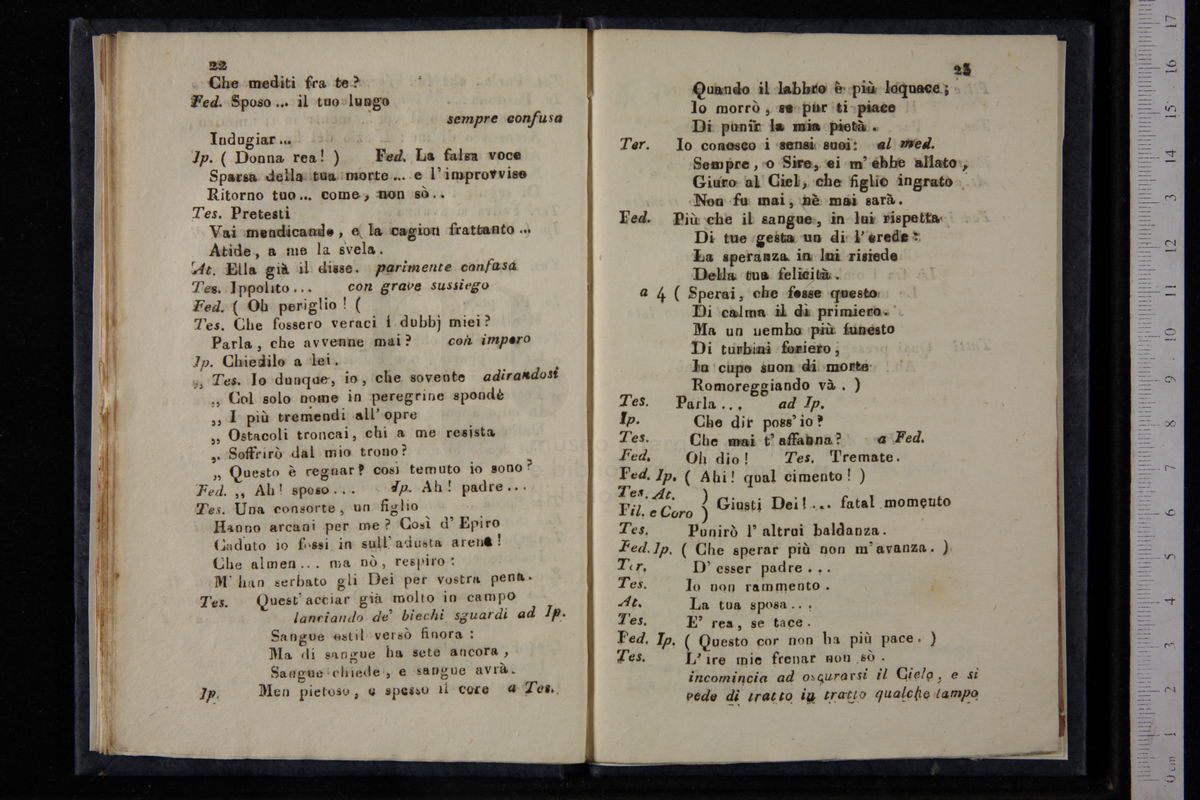 22
Che mediti fra te?
Fed. Sposo... il tuo lungo
sempre confusa
Indugiar...
Ip. ( Donna rea! ) Fed. La falsa voce
Sparsa della tua morte... e l'improvviso
Ritorno tuo... come, non sò..
Tes. Pretesti
Vai mendicando, e la cagion frattanto...
Atide, a me la svela.
At. Ella già il disse. parimente confasa
Tes. Ippolito... con grave sussiego
Fed. ( Oh periglio! (
Tes. Che fossero veraci i dubbj miei?
Parla, che avvenne mai? con impero
Ip. Chiedilo a lei.
,, Tes. Io dunque, io, che sovente adirandosi
,, Col solo nome in peregrine spondè
,, I più tremendi all'opre
,, Ostacoli troncai, chi a me resista
,. Soffrirò dal mio trono?
,, Questo è regnar? così temuto io sono?
Fed. ,, Ah! sposo... Ip. Ah! padre...
Tes. Una consorte, un figlio
Hanno arcani per me? Così d'Epiro
Caduto io fossi in sull'adusta arena!
Che almen... ma nò, respiro:
M'han serbato gli Dei per vostra pena.
Tes. Quest'acciar già molto in campo
lanciando de' biechi sguardi ad Ip.
Sangue ostil versò finora:
Ma di sangue ha sete ancora,
Sangue chiede, e sangue avrà.
Ip. Men pietoso, e spesso il core a Tes.
23
Quando il labbro è più loquace;
Io morrò, se pur ti piace
Di punir la mia pietà.
Ter. Io conosco i sensi suoi: al med.
Sempre, o Sire, ei m'ebbe allato,
Giuro al Ciel, che figlio ingrato
Non fu mai, nè mai sarà.
Fed. Più che il sangue, in lui rispetta
Di tue gesta un dì l'erede:
La speranza in lui risiede
Della tua felicità.
a 4 ( Sperai, che fosse questo
Di calma il dì primiero.
Ma un nembo più funesto
Di turbini foriero,
In cupo suon di morte
Romoreggiando và. )
Tes. Parla... ad Ip.
Ip. Che dir poss'io?
Tes. Che mai t'affanna? a Fed.
Fed. Oh dio! Tes. Tremate.
Fed. Ip. ( Ahi! qual cimento! )
Tes. At. )
Fil. e Coro ) Giusti Dei!... fatal momento
Tes. Punirò l'altrui baldanza.
Fed. Ip. ( Che sperar più non m'avanza. )
Ter. D'esser padre...
Tes. Io non rammento.
At. La tua sposa...
Tes. E' rea, se tace.
Fed. Ip. ( Questo cor non ha più pace. )
Tes. L'ire mie frenar non sò.
incomincia ad oscurarsi il Cielo, e si
vede di tratto in tratto qualche lampo